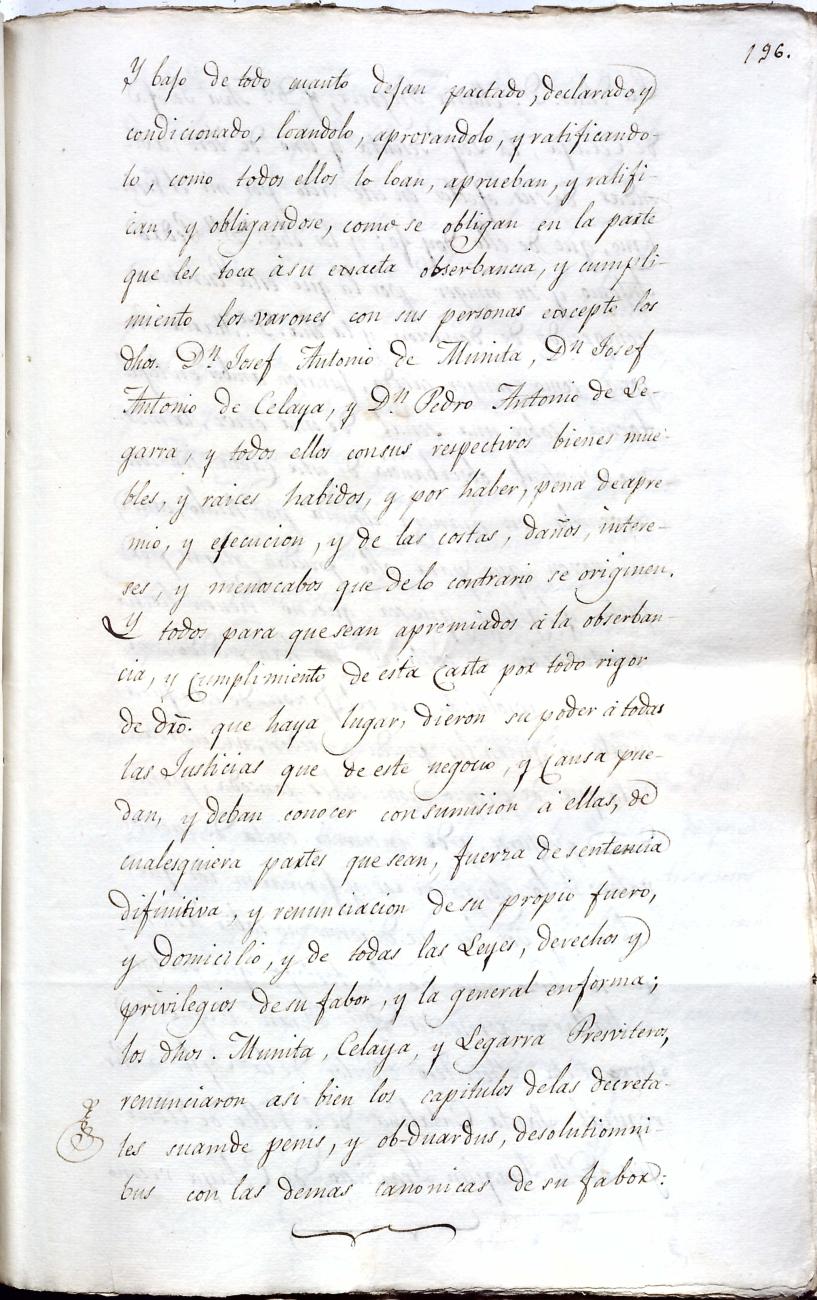 196.
Y bajo de todo cuanto dejan pactado, declarado y
condicionado, loandolo, aprovandolo, y ratificando-
lo, como todos ellos lo loan, aprueban, y ratifi-
can, y obligandose, como se obligan en la parte
que les toca à su exacta obserbancia, y cumpli-
miento los varones con sus personas excepto los
dhos. Dn. Josef Antonio de Munita, Dn Josef
Antonio de Celaya, y Dn. Pedro Antonio de Le-
garra, y todos ellos consus respectivos bienes mue-
bles, y raices habidos, y por haber, pena de apre-
mio, y ejecucion, y de las costas, daños, intere-
ses, y menoscabos que delo contrario se originen.
Y todos para que sean apremiados à la obserban-
cia, y Cumplimiento de esta Carta por todo rigor
de dro. que haya lugar, dieron su poder à todas
las Justicias que de este negocio, y Causa pue-
dan, y deban conocer consumision à ellas, de
cualesquiera partes que sean, fuerza de sentencia
difinitiva, y renunciacion de su propio fuero,
y domicilio, y de todas las Leyes, derechos y
privilegios de su fabor, y la general enforma;
los dhos. Munita, Celaya, y Legarra Presviteros,
renunciaron asi bien los capitulos delas decreta-
les suamde penis, y ob-duardus, desolutiomni
bus con las demas canonicas de su fabor: